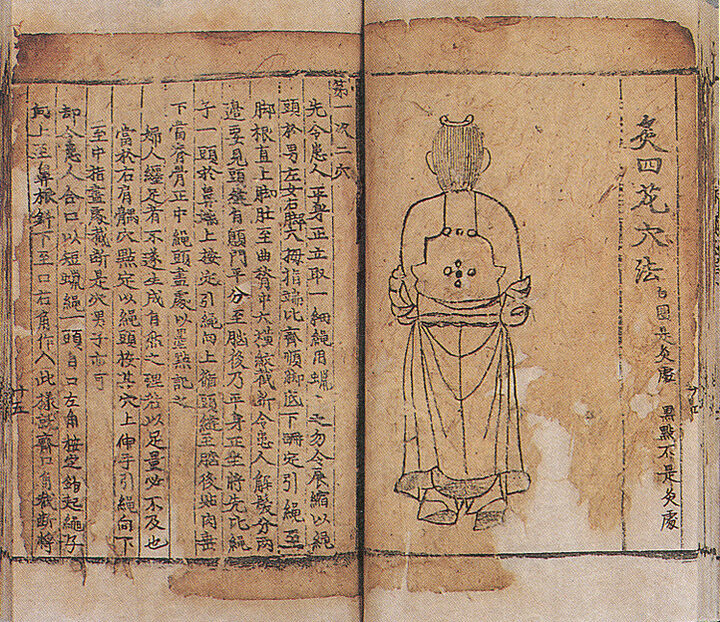 灸四花穴法 白圈是灸處 黑點不是灸處
第一次二穴
先令患人平身正立取一細繩用蠟 之勿令展縮以繩
頭於男左女右脚大拇指端比齊順脚底下踹定引繩至
脚根直上脚肚至曲 中大橫紋截斷令患人解髮分兩
邊要見頭縫有顖門平分至腦後乃平身正坐將先比繩
子一頭於鼻端上按定引繩向上循頭縫至腦後貼肉垂
下當脊骨正中繩頭盡處以墨點記之
婦人纏足有不遂生成自然之理若以足量必不及也
當於右肩髃穴點定以繩頭按其穴上伸手引繩向下
至中指盡處截斷是穴男子亦可
却令患人合口以短蠟繩一頭自口左角按定鈎起繩子
向上至鼻根斜下至口右角作人此樣式齊口角截斷將
十五